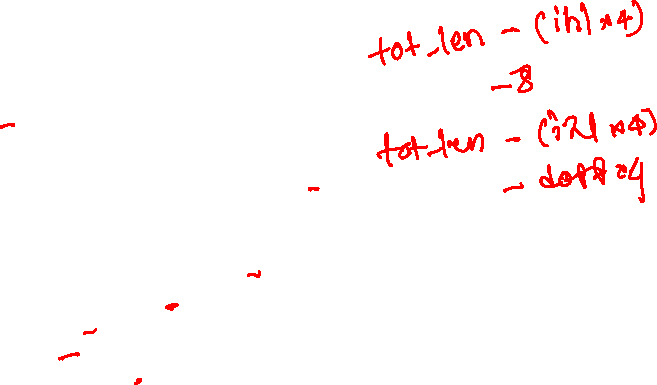 tot_len - (ihl*4)
-8
tot_len - (ihl*4)
- doff*4